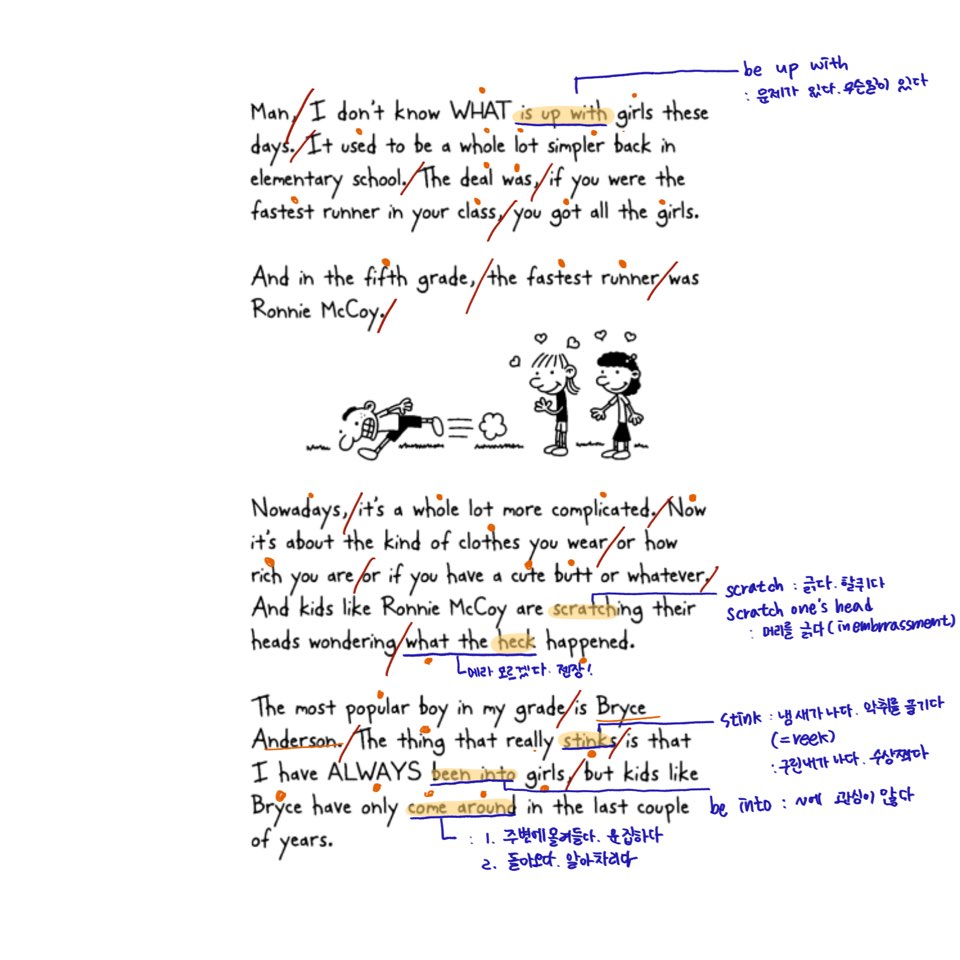 be up with
: 문제가 있다. 무슨일이 있다
Man, I don't know WHAT is up with girls these
days. It used to be a whole lot simpler back in
elementary school. The deal was, if you were the
fastest runner in your class, you got all the girls.
And in the fifth grade, the fastest runner was
Ronnie McCoy.
Nowadays, it's a whole lot more complicated. Now
it's about the kind of clothes you wear or how
rich you are or if you have a cute butt or whatever.
And kids like Ronnie McCoy are scratching their
heads wondering what the heck happened.
scratch : 긁다. 할퀴다
scratch one's head
: 머리를 긁다 (in embrrassment)
에라 모르겠다. 젠장!
The most popular boy in my grade is Bryce
Anderson. The thing that really stinks is that
I have ALWAYS been into girls, but kids like
Bryce have only come around in the last couple
of years.
stink : 냄새가 나다. 악취를 풍기다
(=reek)
: 구린내가 나다. 수상쩍다
be into : ~에 관심이 많다
: 1. 주변에 몰려들다. 운집하다
2. 돌아오다. 알아차리다